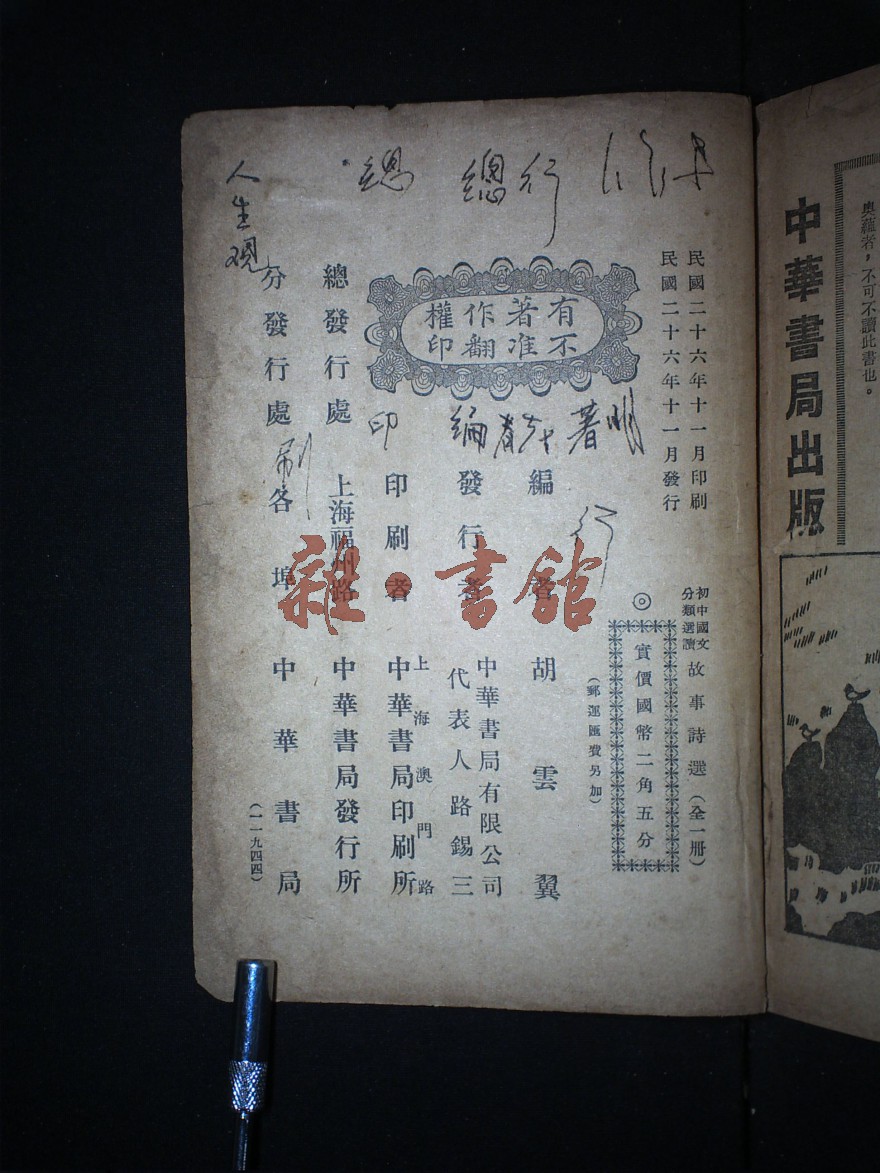 奧蘊者，不可不讀此書也。
中華書局出版
民國二十六年十一月印刷
民國二十六年十一月發行
初中國文
分類選讀
故事詩選（全一冊）
◎
實價國幣二角五分
（郵運匯費另加）
有著作權
不准翻印
編者 胡雲翼
發行者
中華書局有限公司
代表人路錫三
印刷者
上海澳門路
中華書局印刷所
總發行處
上海福州路
中華書局發行所
分發行處
各埠 中華書局
（一一九四四）
行
總
總
人生观
明
著
編
印
刷
行
雜·書館